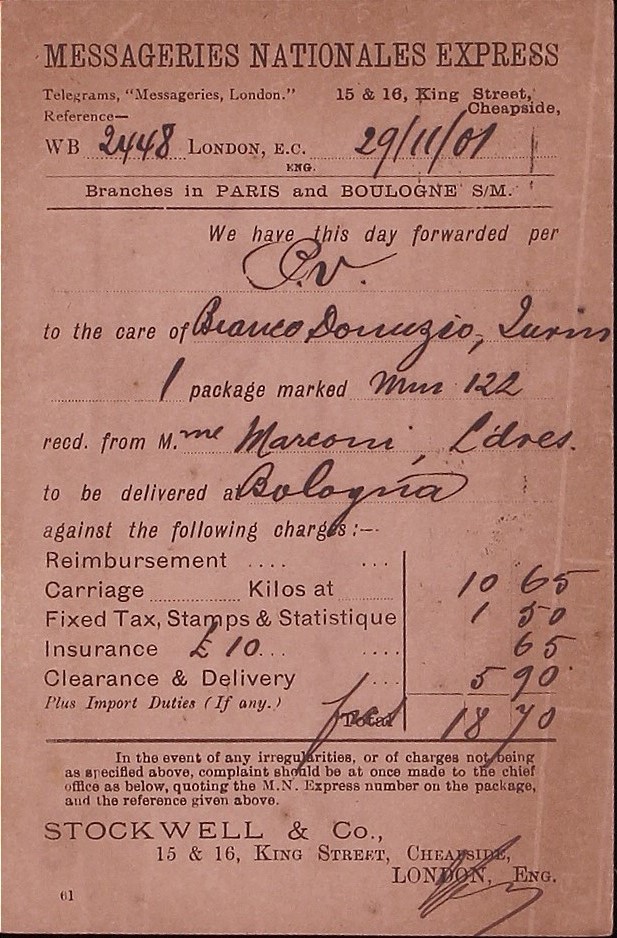 MESSAGERIES NATIONALES EXPRESS
Telegrams, "Messageries, London." 15 & 16, King Street,
Cheapside,
Reference—
WB 2448 LONDON, E.C. 29/11/01
ENG.
Branches in PARIS and BOULOGNE S/M.
We have this day forwarded per
P.V.
to the care of Bianco Donuzio, Turin
1 package marked Mm 122
recd. from M.me Marconi, L'dres.
to be delivered at Bologna
against the following charges:—
Reimbursement .... ...
Carriage Kilos at 10 65
Fixed Tax, Stamps & Statistique 1 50
Insurance £10... .... 65
Clearance & Delivery ... 5 90
Plus Import Duties (If any.)
Total 18 70
In the event of any irregularities, or of charges not being
as specified above, complaint should be at once made to the chief
office as below, quoting the M.N. Express number on the package,
and the reference given above.
STOCKWELL & Co.,
15 & 16, KING STREET, CHEAPSIDE,
LONDON, ENG.
61